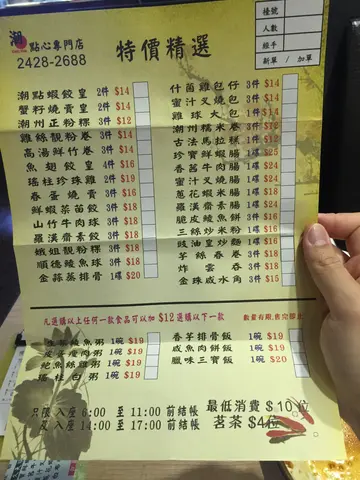 潮
點心專門店
2428-2688
特價精選
檯號
人數
經手
新單 / 加單
潮點蝦餃皇 2件 $14
蟹籽燒賣皇 2件 $14
潮州正粉粿 3件 $12
雞絲靚粉卷 3件 $14
高湯鮮竹卷 3件 $14
魚翅餃 4件 $16
瑤柱珍珠雞 2件 $19
春蛋燒賣 3件 $16
鮮蝦菜苗餃 3件 $18
山竹牛肉球 3件 $18
羅漢齋素餃 3件 $18
娥姐靚粉粿 3件 $18
順德鯪魚球 3件 $18
金蒜蒸排骨 1碟 $20
什菌雞包仔 3件 $14
蜜汁叉燒包 3件 $14
雞球大包 1件 $14
潮州糯米卷 3件 $12
古法馬拉糕 1件
珍寶鮮蝦腸 1碟 $25
香茜牛肉腸 1碟 $24
蜜汁叉燒腸 1碟 $24
蔥花蝦米腸 1碟 $18
羅漢齋素腸 1碟 $24
脆皮鯪魚餅 3件 $16
三絲炒米粉 1碟 $16
豉油皇炒麵 1碟 $16
芋絲春卷 3件 $18
炸雲吞 3件 $18
金珠咸水角 3件 $15
凡選購以上任何一款食品可以加 $12 選購以下一款
數量有限,售完即止
生菜鯪魚粥 1碗 $19
皮蛋瘦肉粥 1碗 $19
鮑魚絲雞粥 1碗 $19
瑤柱白粥 1碗 $19
香芋排骨飯 1碗 $19
咸魚肉餅飯 1碗 $19
臘味三寶飯 1碗 $20
只限入座 6:00 至 11:00 前結帳
入座 14:00 至 17:00 前結帳
最低消費 $10位
茗茶 $4位